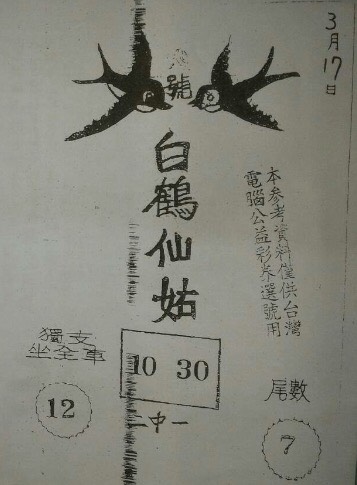 3月17日
號
白鶴仙姑
本参考資料僅供台灣
電腦公益彩券選號用
獨支
坐全車
12
10 30
二中一
尾數
7